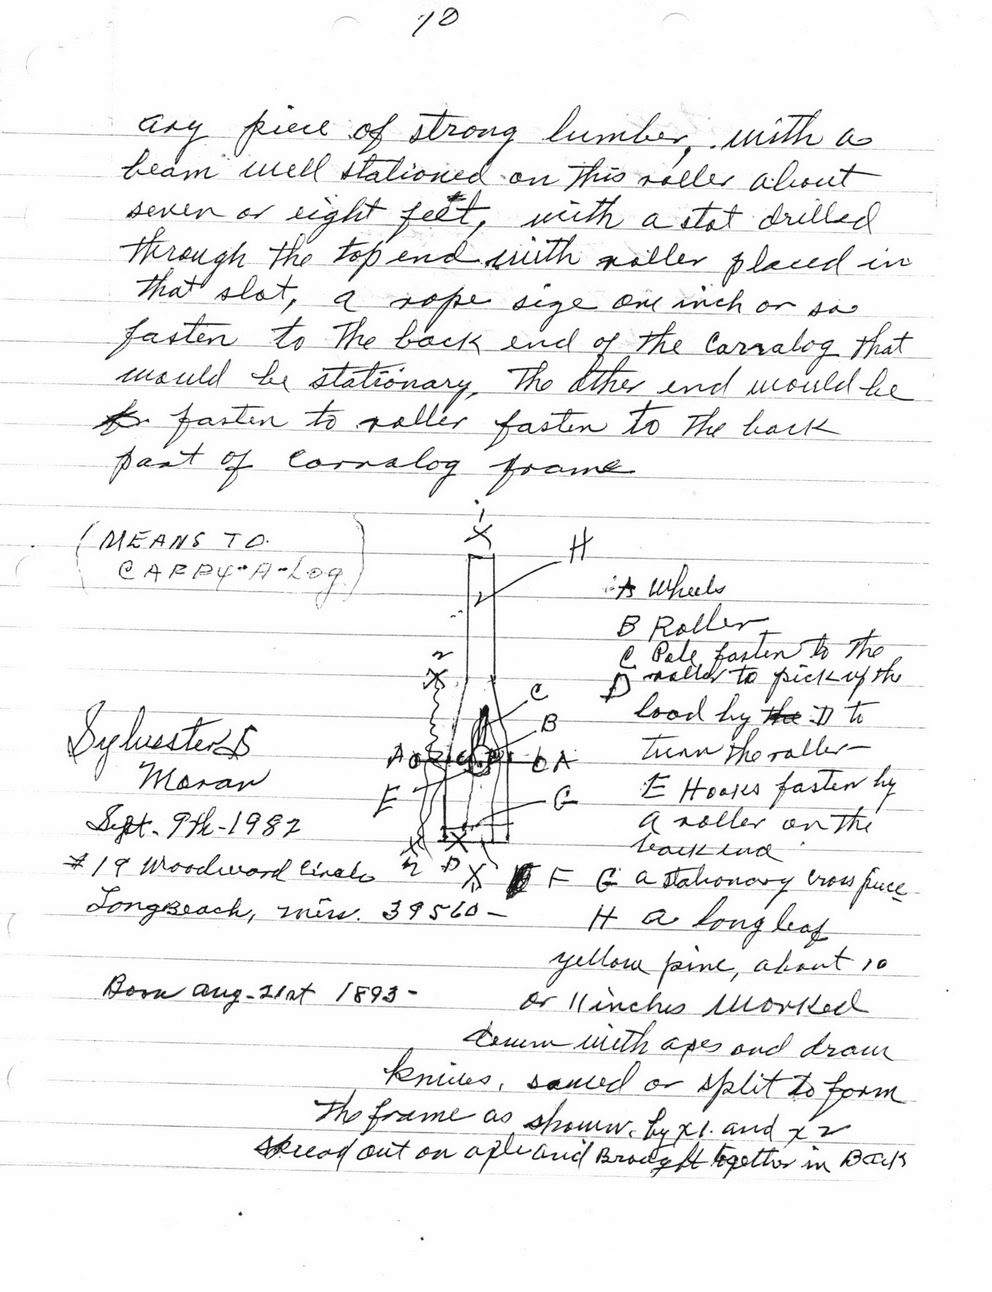 10
any piece of strong lumber, with a
beam well stationed on this roller about
seven or eight feet, with a slot drilled
through the top end with roller placed in
that slot, a rope size one inch or so
fasten to the back end of the Carralog that
would be stationary, the other end would be
fasten to roller fasten to the back
part of Carralog frame
(MEANS TO
CARRY-A-LOG)
X
H
A Wheels
B Roller
C Pole fasten to the
roller to pick up the
D
load by the D to
turn the roller—
E Hooks fasten by
a roller on the
back end
G a stationary cross piece
H a long leaf
yellow pine, about 10
or 11 inches worked
down with axes and draw
knives, sawed or split to form
the frame as shown by x1. and x2
spread out on axle and Brought together in Back
2
X
C
B
A
A
E
G
X
D
X
F
Sylvester S
Moran
Sept. 9th-1982
#19 Woodward Circle
Long Beach, Miss. 39560-
Born Aug-21st 1893-